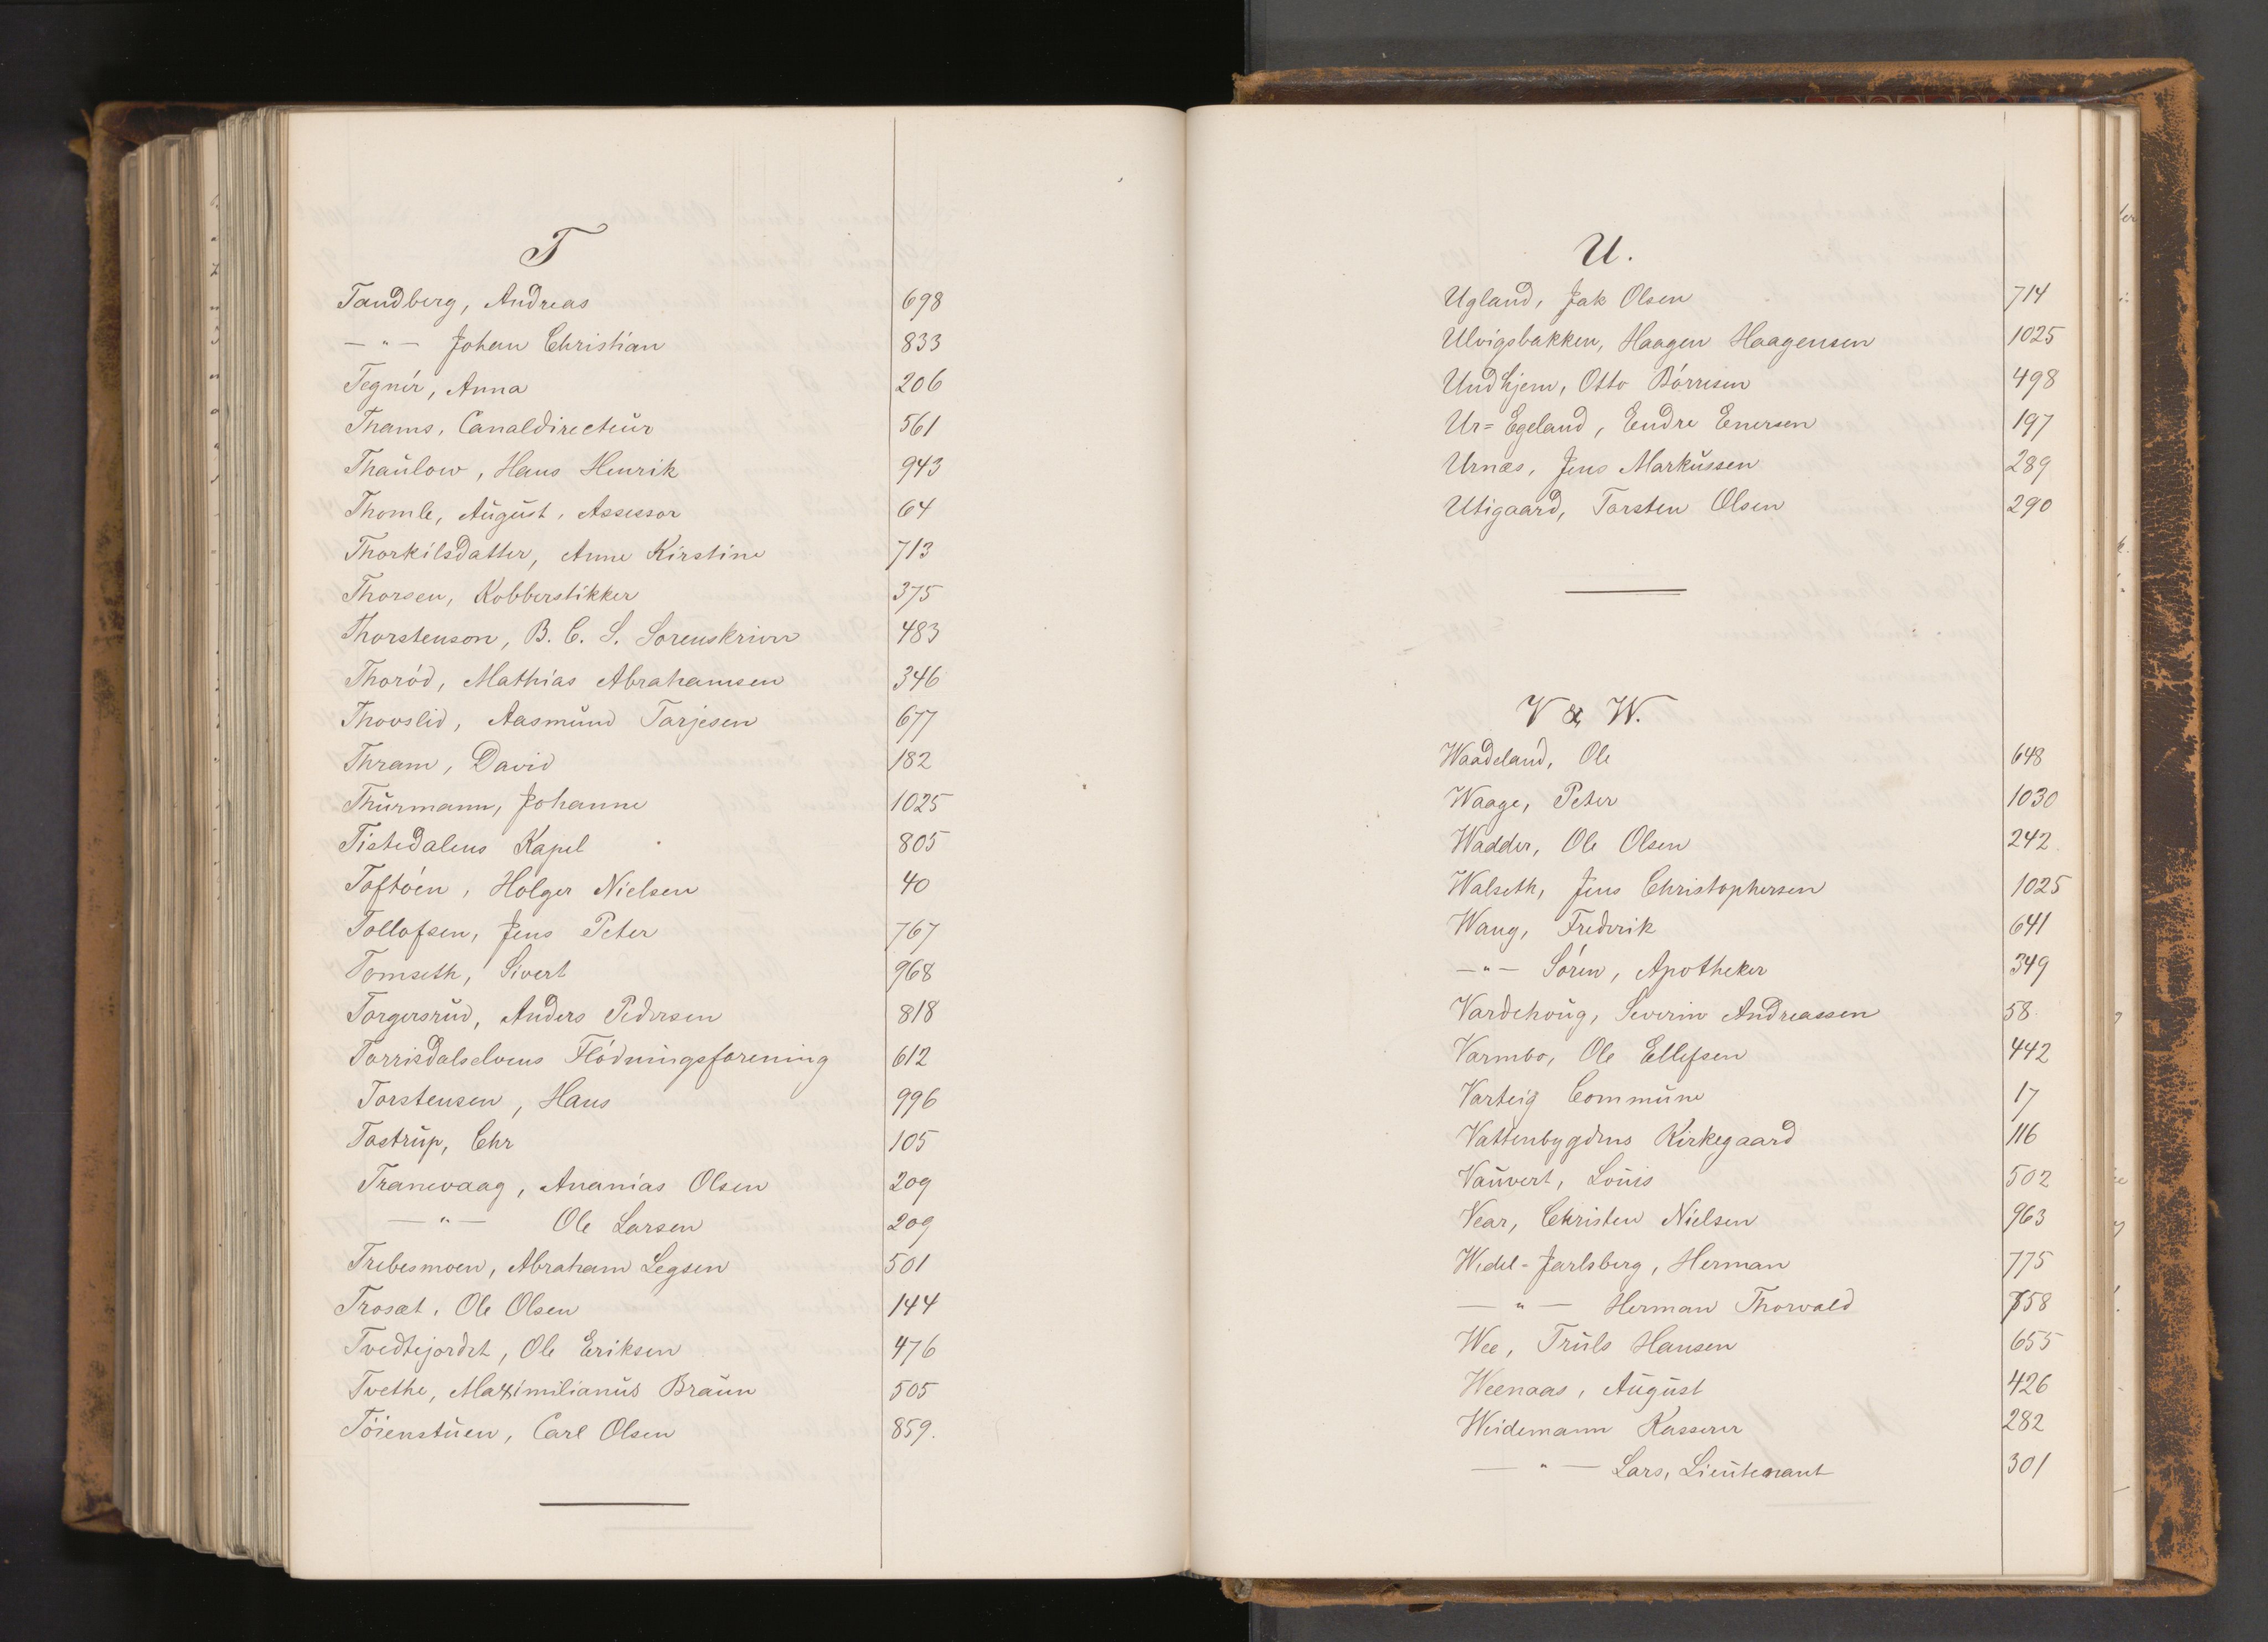 T
Tandberg, Andreas 698
— " — Johan Christian 833
Tegnér, Anna 206
Thams, Canaldirecteur 561
Thaulow, Hans Henrik 943
Thomle, August, Assessor 64
Thorkilsdatter, Anne Kirstine 713
Thorsen, Kobberstikker 375
Thorstenson, B. C. S. Sorenskriver 483
Thoröd, Mathias Abrahamsen 346
Thovslid, Aasmund Tarjesen 677
Thram, David 182
Thurmann, Johanne 1025
Tistedalens Kapel 805
Toftöen, Holger Nielsen 40
Tollofsen, Jens Peter 767
Tomseth, Sivert 968
Torgersrud, Anders Pedersen 818
Torrisdalselvens Flödningsforening 612
Torstensen, Hans 996
Tostrup, Chr 105
Tranevaag, Ananias Olsen 209
— " — Ole Larsen 209
Trebesmoen, Abraham Legsen 501
Trosæt, Ole Olsen 144
Tvedtejordet, Ole Eriksen 476
Tvethe, Maximilianus Braun 505
Töienstuen, Carl Olsen 859.
U.
Ugland, Jak Olsen 714
Ulvigsbakken, Haagen Haagensen 1025
Undhjem, Otto Börresen 498
Ur=Egeland, Endre Enersen 197
Urnæs, Jens Markussen 289
Utigaard, Torsten Olsen 290
V & W.
Waadeland, Ole 648
Waage, Peter 1030
Wadder, Ole Olsen 242
Walseth, Jens Christophersen 1025
Wang, Frederik 641
— " — Sören, Apotheker 349
Vardehoug, Severin Andreassen 58
Varmbo, Ole Ellefsen 442
Varteig Commune 17
Vattenbygdens Kirkegaard 116
Vauvert, Louis 502
Vear, Christen Nielsen 963
Wedel-Jarlsberg, Herman 775
— " — Herman Thorvald 758
Wee, Truls Hansen 655
Weenaas, August 426
Weidemann Kasserer 282
— " — Lars, Lieutenant 301